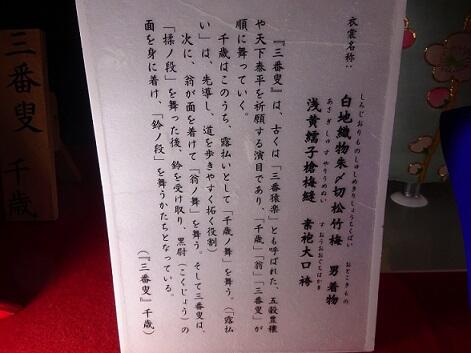 衣裳名称：
しろじおりものしゅしめきりしょうちくばい　おとこきもの
白地織物朱〆切松竹梅　男着物
あさぎしゅすやりうめぬい　すおうおおぐちばかま
浅黄繻子槍梅縫　素袍大口袴
『三番叟』は、古くは「三番猿楽」とも呼ばれた、五穀豊穣
や天下泰平を祈願する演目であり、「千歳」「翁」「三番叟」が
順に舞っていく。
千歳はこのうち、露払いとして「千歳ノ舞」を舞う。（「露払
い」は、先導し、道を歩きやすく拓く役割）
次に、翁が面を着けて「翁ノ舞」を舞う。そして三番叟は、
「揉ノ段」を舞った後、鈴を受け取り、黒尉（こくじょう）の
面を身に着け、「鈴ノ段」を舞うかたちとなっている。
（『三番叟』千歳）
三番叟　千歳